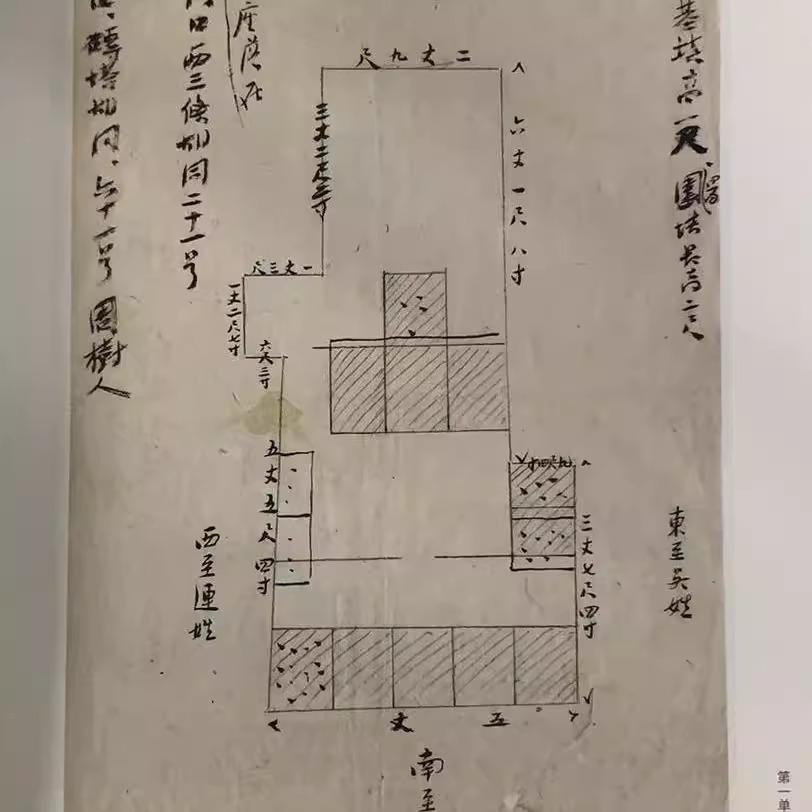 基填高一尺、圍墙
長高二三尺
二丈九尺
六丈一尺八寸
三丈二尺三寸
一丈三尺
一丈二尺七寸
六尺三寸
九尺四寸
三丈七尺四寸
五丈五尺四寸
五丈
東至吴姓
西至連姓
南至
座落在
口西三條胡同二十一号
磚塔胡同、六十一号 周樹人
第一单